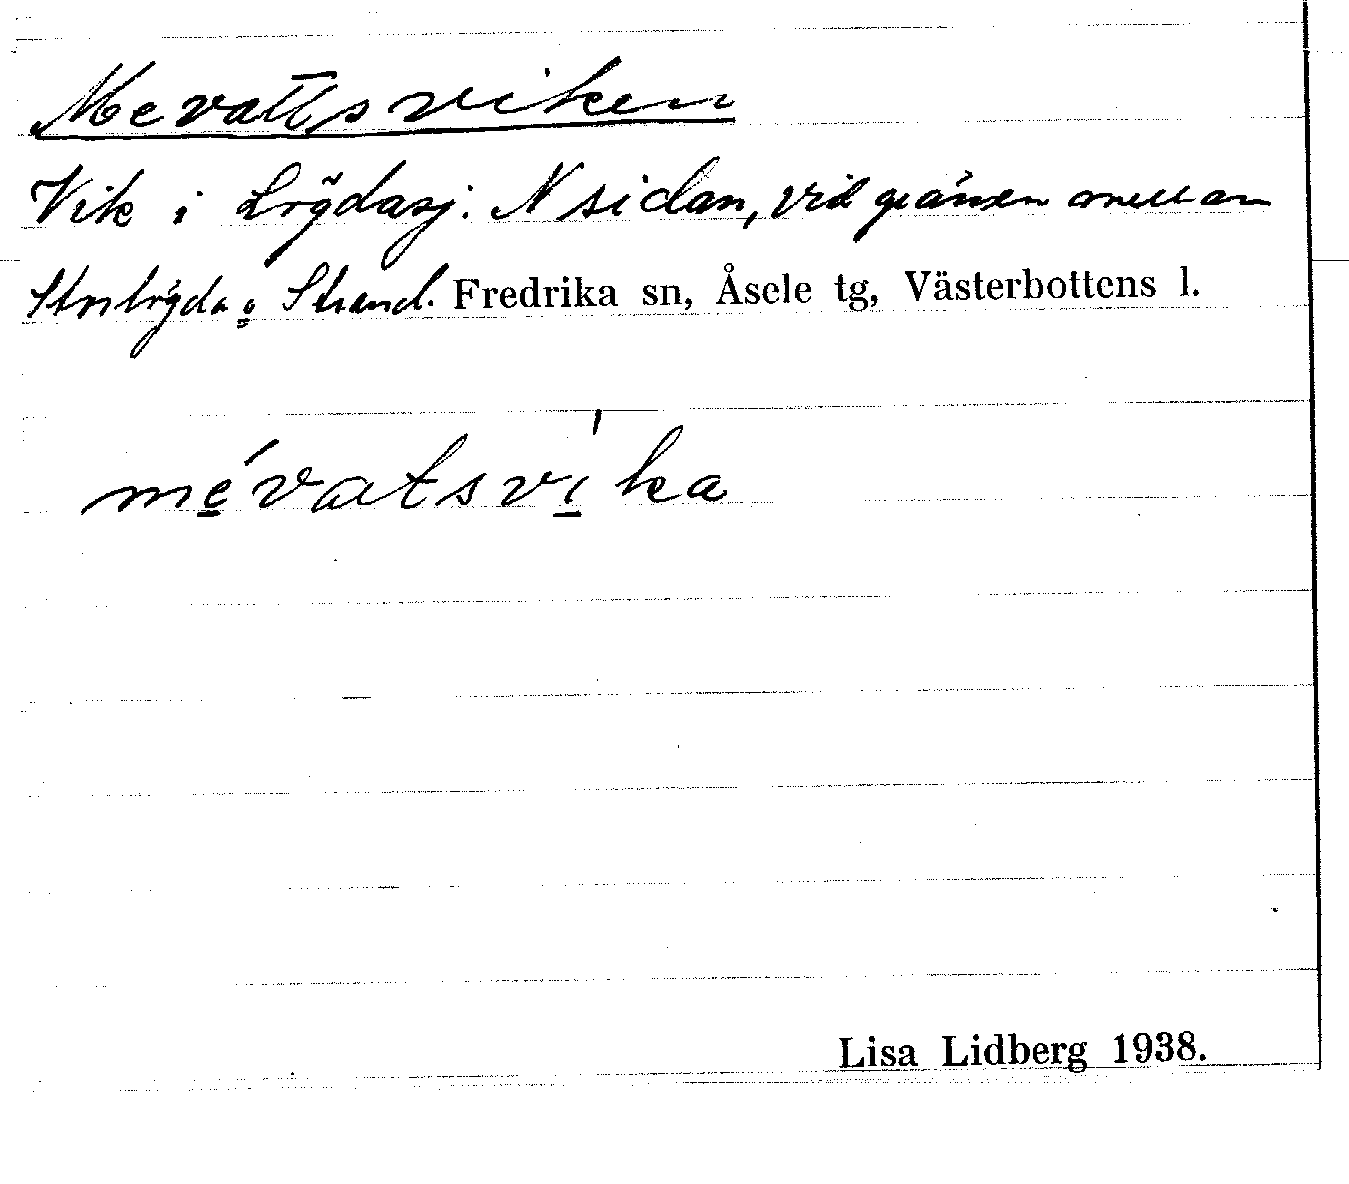 Mevattsviken
Vik i Lögdasj. N sidan, vid gränsen mellan
Storlögda o Strand. Fredrika sn, Åsele tg, Västerbottens l.
mévatsvíka
Lisa Lidberg 1938.